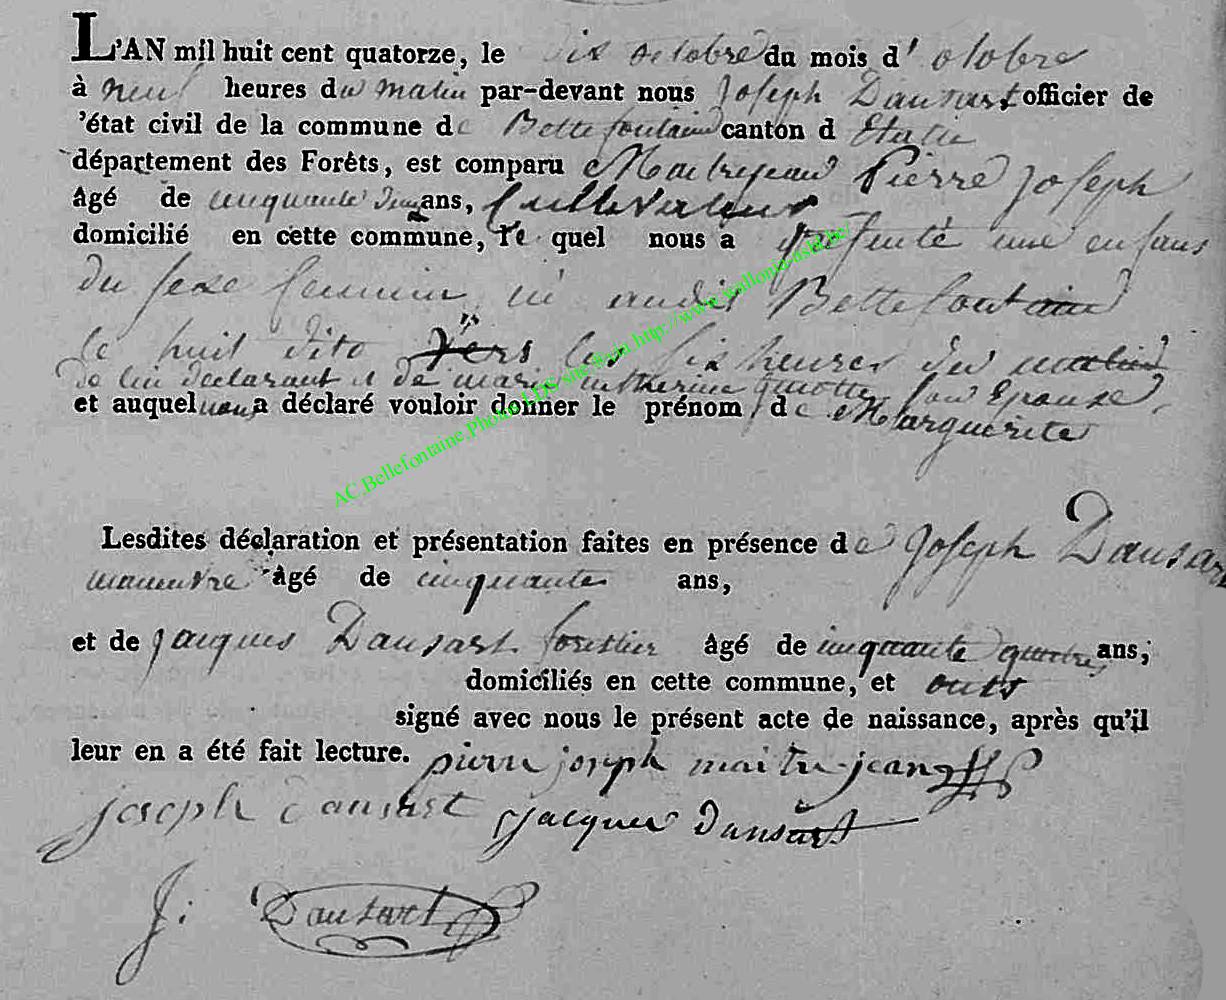 L'AN mil huit cent quatorze, le dix octobre du mois d' otobre
à neuf heures du matin par-devant nous Joseph Dausart officier de
'état civil de la commune de Bellefontaine canton d Etalle
département des Forêts, est comparu Maitrejean Pierre Joseph
âgé de cinquante ans, cultivateur
domicilié en cette commune, le quel nous a presenté une enfans
du sexe feminin né audit Bellefontaine
le huit dito vers les six heures du matin
de lui declarant et de marie Catherine son Epouse,
et auquel a déclaré vouloir donner le prénom de Marguerite
Lesdites déclaration et présentation faites en présence de Joseph Dausart
manuvre âgé de cinquante ans,
et de jacques Dausart forestier âgé de cinquante quatre ans;
domiciliés en cette commune, et onts
signé avec nous le présent acte de naissance, après qu'il
leur en a été fait lecture. pierre joseph maitrejean
joseph dausart jacques dansart
J: Dausart
AC.Bellefontaine.Photos LDS sne @via http://www.wallonia-asbl.be/